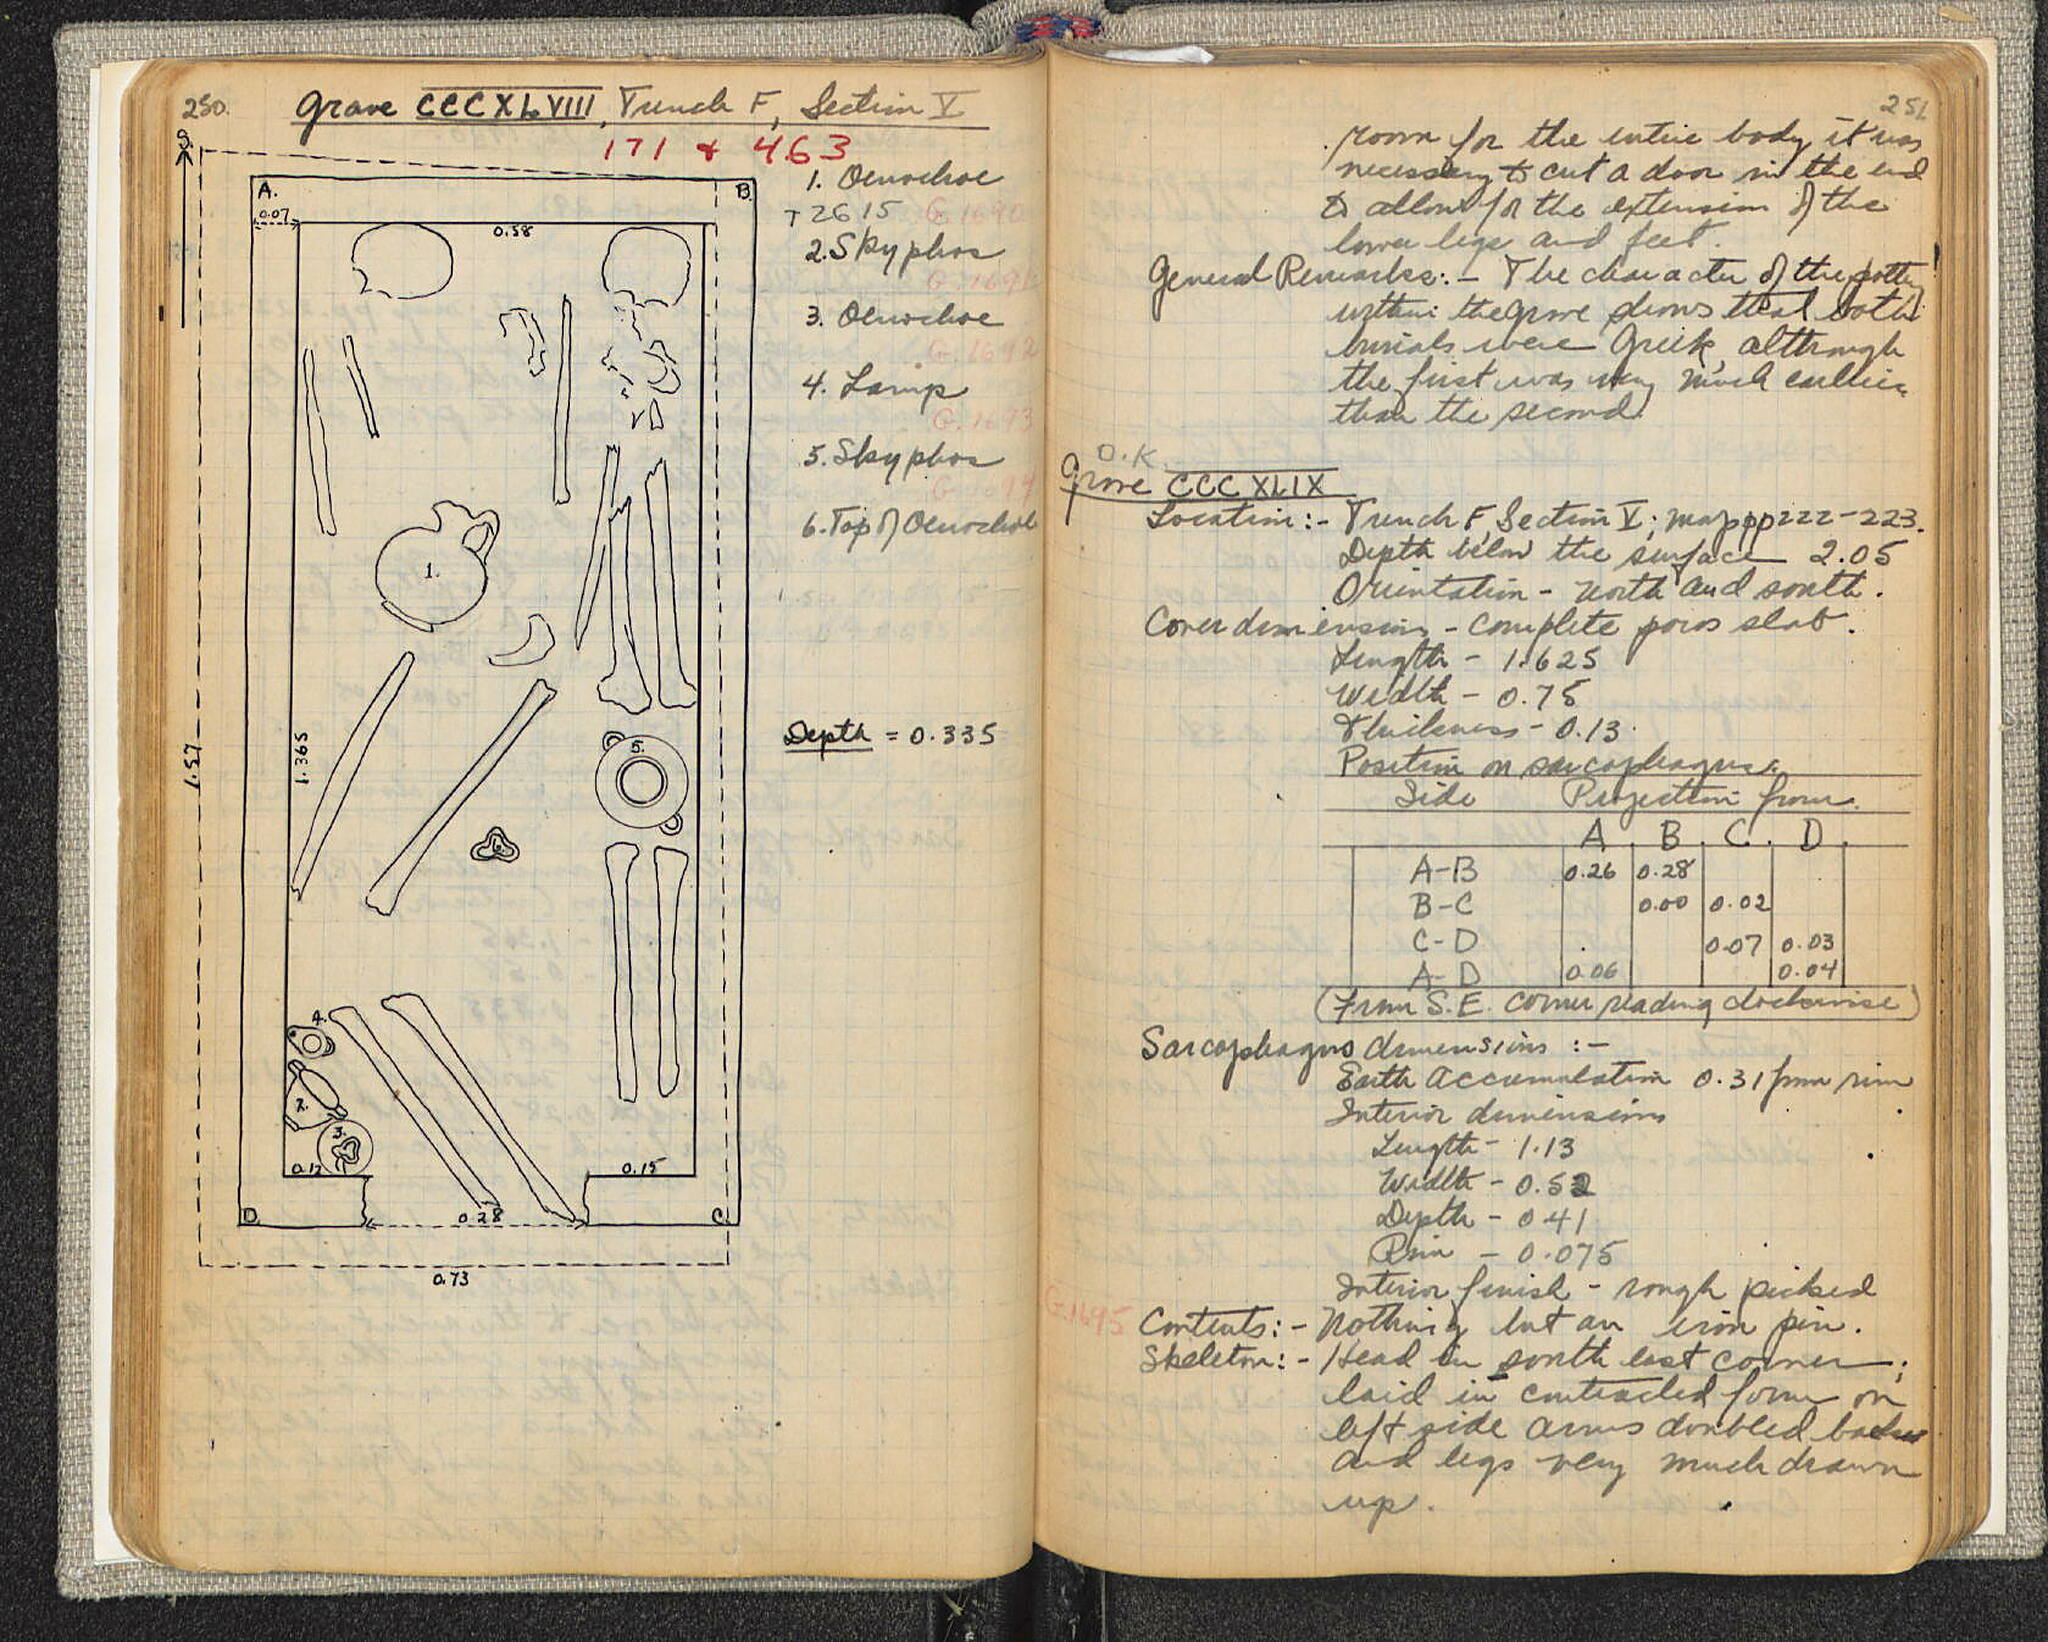 250.
Grave CCCXLVIII, Trench F, Section V
171 & 463
S.
A.
B
0.07
0.58
1. Oenochoe
T 2615 G.1690
2. Skyphos
G.1691
3. Oenochoe
G.1692
4. Lamp
G.1693
5. Skyphos
G.1694
6. Top of Oenochoe
1.
1.57
1.365
5.
6
Depth = 0.335
4.
2.
3.
0.12
0.15
D.
0.28
C.
0.73
251
room for the entire body it was
necessary to cut a door in the end
to allow for the extension of the
lower legs and feet.
General Remarks:- The character of the pottery
within the grave shows that both
burials were Greek, although
the first was very much earlier
than the second.
O.K.
Grave CCCXLIX
Location:- Trench F, Section V; map pp 222-223.
Depth below the surface 2.05
Orientation - north and south.
Cover dimensions - Complete poros slab.
Length - 1.625
Width - 0.75
Thickness - 0.13.
Position on sarcophagus.
Side Projection from.
A B C D
A-B 0.26 0.28
B-C 0.00 0.02
C-D 0.07 0.03
A-D 0.06 0.04
(From S.E. corner reading clockwise)
Sarcophagus dimensions :-
Earth Accumulation 0.31 from rim
Interior dimensions
Length - 1.13
Width - 0.52
Depth - 0.41
Rim - 0.075
Interior finish - rough picked
G.1695 Contents:- Nothing but an iron pin.
Skeleton:- Head in south east corner;
laid in contracted form on
left side arms doubled back
and legs very much drawn
up.